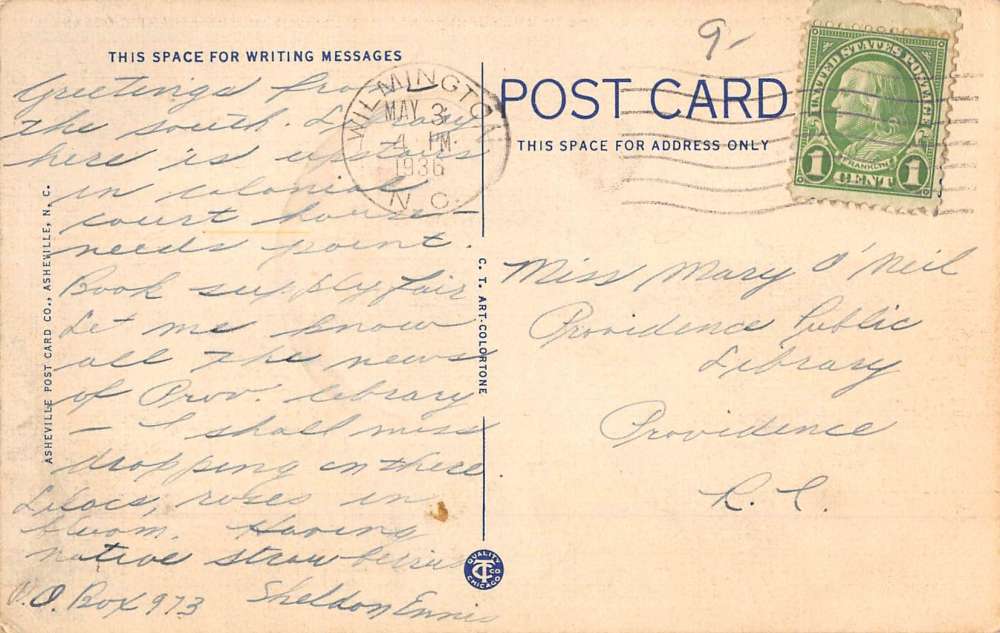 THIS SPACE FOR WRITING MESSAGES
Greetings from
the south. Library
here is upstairs
in colonial
court house -
needs paint.
Book supply fair
Let me know
all the news
of Prov. library
- I shall miss
dropping in there.
Lilacs, roses in
bloom. Having
native strawberries
P.O. Box 973 Sheldon Ennis
ASHEVILLE POST CARD CO., ASHEVILLE, N. C.
C. T. ART-COLORTONE
QUALITY
CT CO
CHICAGO
WILMINGTON
MAY 3
4 PM
1936
N. C.
9-
POST CARD
THIS SPACE FOR ADDRESS ONLY
UNITED STATES POSTAGE
FRANKLIN
1 CENT 1
Miss Mary O'Neil
Providence Public
Library
Providence
R. I.